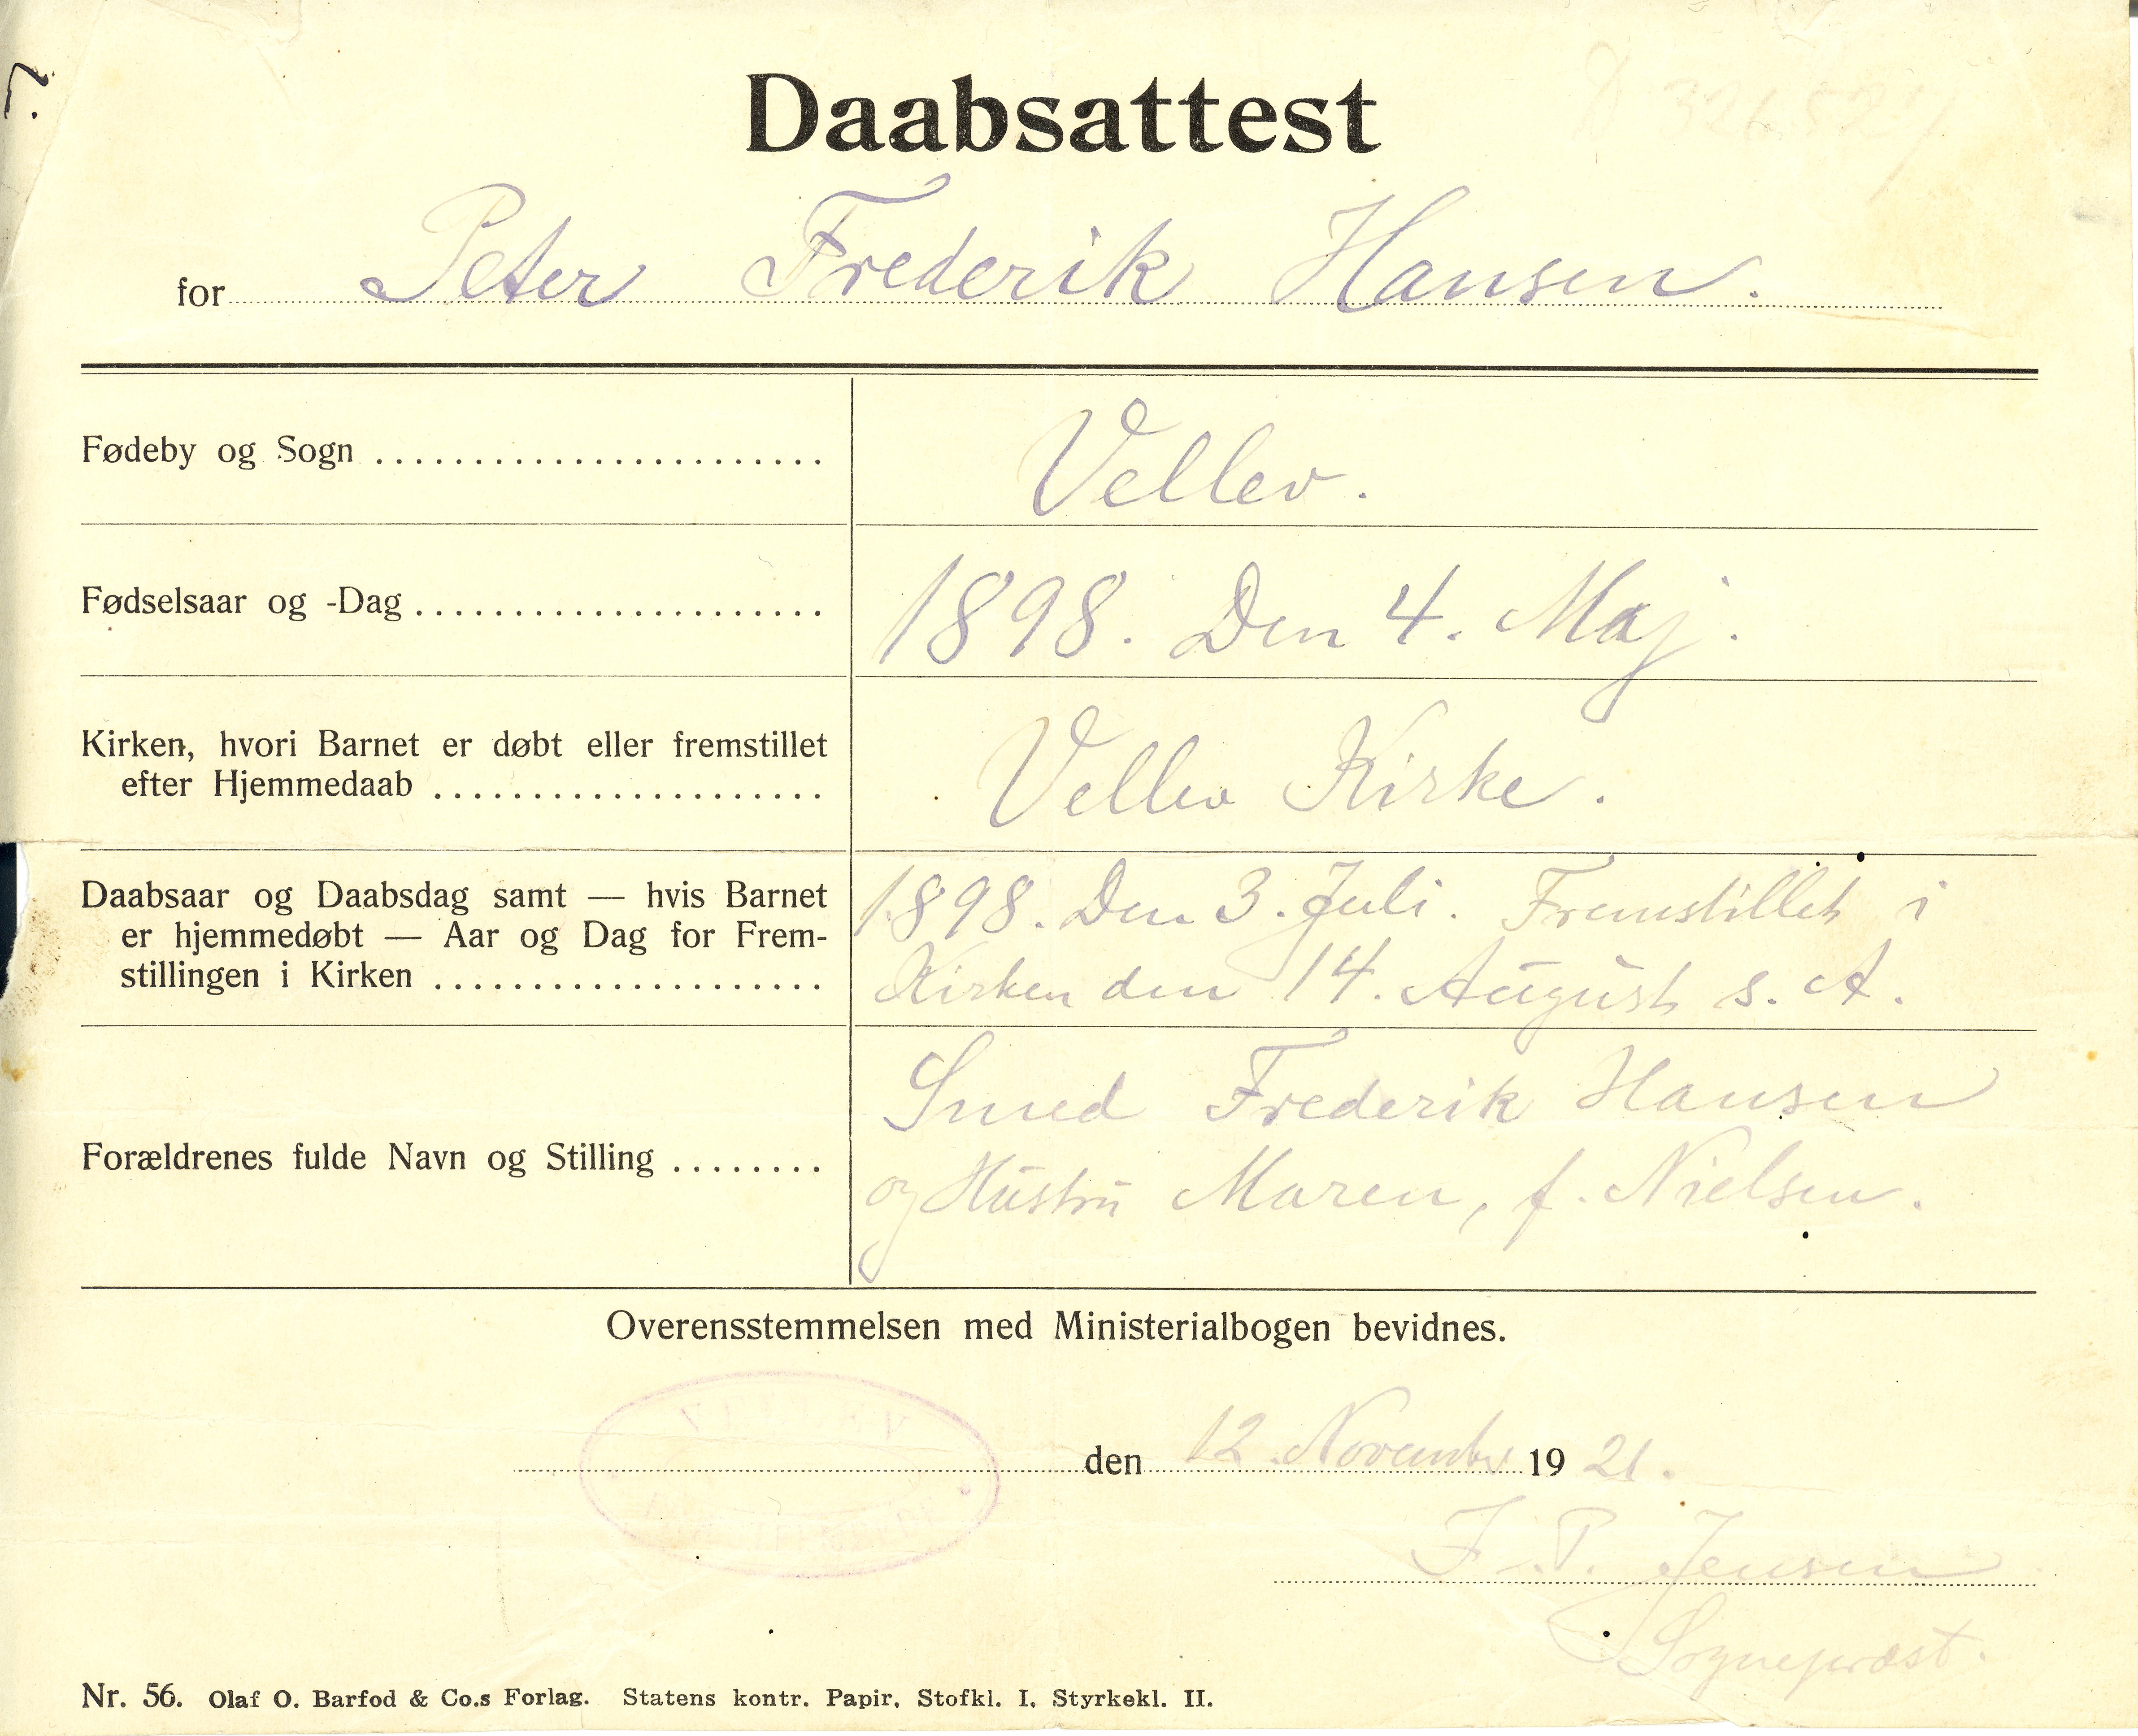 Daabsattest
for Peter Frederik Hansen.
Fødeby og Sogn
Vellev.
Fødselsaar og -Dag
1898. Den 4. Maj.
Kirken, hvori Barnet er døbt eller fremstillet
efter Hjemmedaab
Vellev Kirke.
Daabsaar og Daabsdag samt — hvis Barnet
er hjemmedøbt — Aar og Dag for Frem-
stillingen i Kirken
1898. Den 3. Juli. Fremstillet i
Kirken den 14. August s. A.
Forældrenes fulde Navn og Stilling
Smed Frederik Hansen
og Hustru Maren, f. Nielsen.
Overensstemmelsen med Ministerialbogen bevidnes.
den 12. November 1921.
J. P. Jensen
Sognepræst.
Nr. 56. Olaf O. Barfod & Co.s Forlag. Statens kontr. Papir, Stofkl. I, Styrkekl. II.